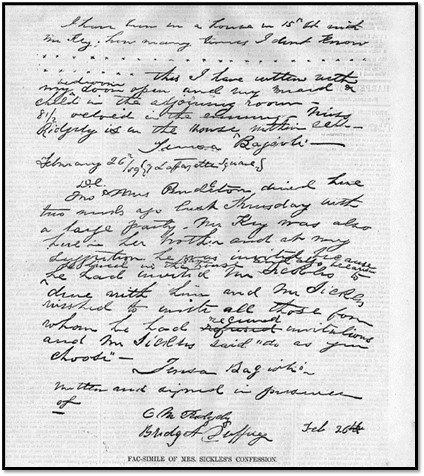 I have been in a house in 15th St with
Mr Key, how many times I dont know
bedroom
this I have written with
my door open and my maid &
child in the adjoining room—
8½ oclock in the evening. Miss
Ridgely is in the house within call—
Teresa Bagioli—
February 26th/59 Lafayette Square
Mrs Pendleton dined here
two weeks ago last Thursday with
a large party. Mr Key was also
here, her brother and at my
suggestion he was invited because
he lived in the house and also because
he had invited Mr Sickles to
dine with him and Mr Sickles
wished to invite all those from
whom he had received invitations
and Mr Sickles said "do as you
choose"—
Teresa Bagioli—
Written and signed in presence
of
C M Ridgely
Bridget Duffy
Feb 26th
FAC-SIMILE OF MRS. SICKLES'S CONFESSION.